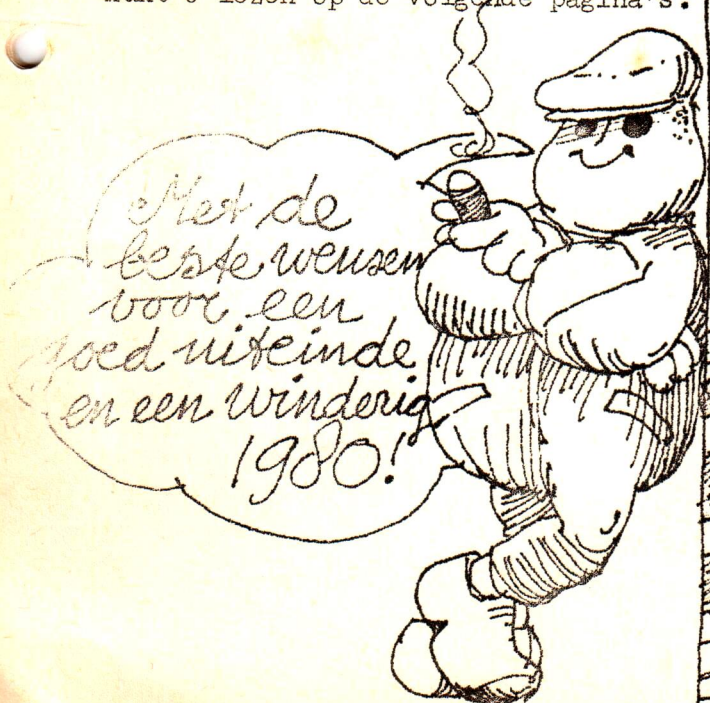 kunt u lezen op de volgende pagina's.
Met de
beste wensen
voor een
goed uiteinde
en een winderig
1980!